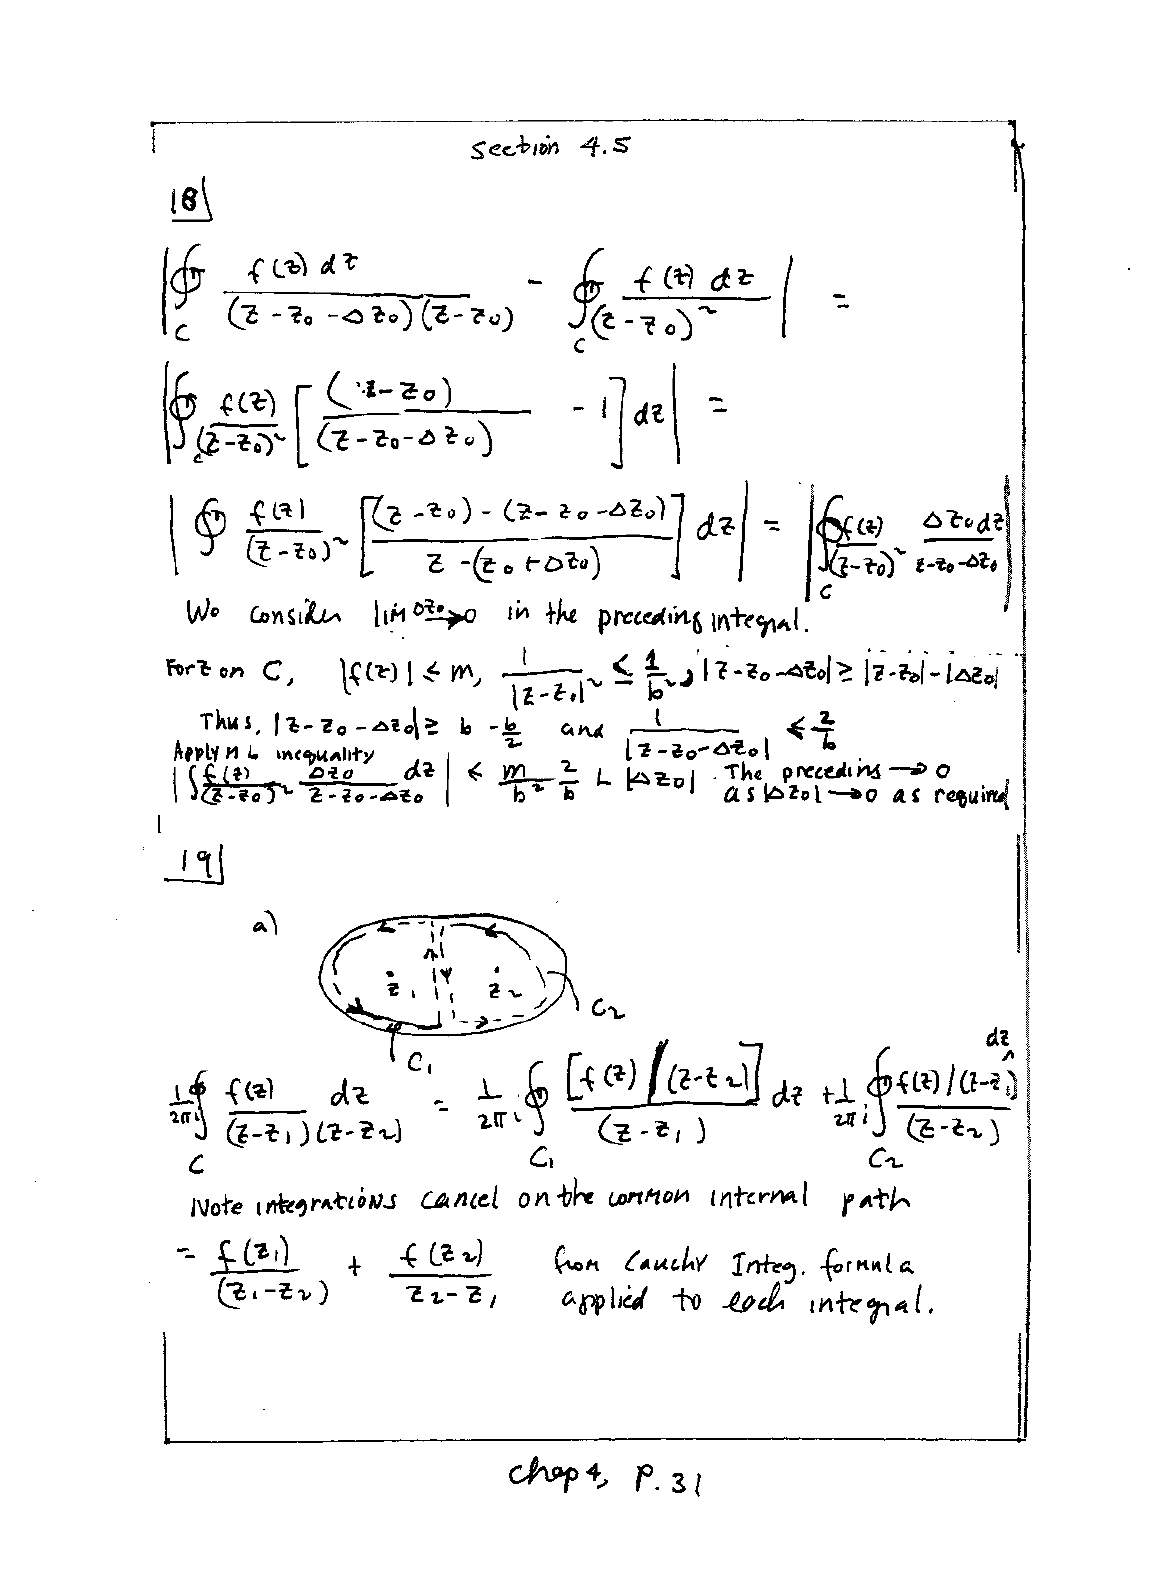 Section 4.5
18
| ∮_C f(z) dz / (z - z₀ - Δz₀)(z - z₀) - ∮_C f(z) dz / (z - z₀)² | =
| ∮_C f(z) / (z - z₀)² [ (z - z₀) / (z - z₀ - Δz₀) - 1 ] dz | =
| ∮ f(z) / (z - z₀)² [ (z - z₀) - (z - z₀ - Δz₀) / z - (z₀ + Δz₀) ] dz | = | ∮_C f(z) / (z - z₀)² Δz₀ dz / z - z₀ - Δz₀ |
We consider lim Δz₀→0 in the preceding integral.
For z on C, |f(z)| ≤ m, 1 / |z - z₀|² ≤ 1/b², |z - z₀ - Δz₀| ≥ |z - z₀| - |Δz₀|
Thus, |z - z₀ - Δz₀| ≥ b - b/2 and 1 / |z - z₀ - Δz₀| ≤ 2/b
Apply ML inequality
| ∫ f(z) / (z - z₀)² Δz₀ / z - z₀ - Δz₀ dz | ≤ m/b² 2/b L |Δz₀| . The preceding → 0
as |Δz₀| → 0 as required
19
a)
z₁ z₂
C₂
C₁
1/2πi ∮_C f(z) dz / (z - z₁)(z - z₂) = 1/2πi ∮_C₁ [f(z) / (z - z₂)] / (z - z₁) dz + 1/2πi ∮_C₂ f(z) / (z - z₁) / (z - z₂) dz
Note integrations cancel on the common internal path
= f(z₁) / (z₁ - z₂) + f(z₂) / z₂ - z₁ from Cauchy Integ. formula
applied to each integral.
Chap 4, P. 31